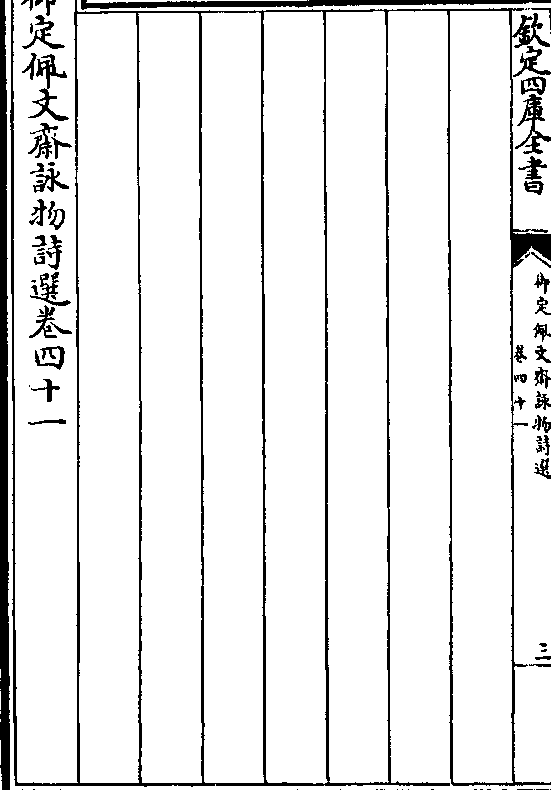 欽定四庫全書
御定佩文齋詠物詩選
卷四十一
三
御定佩文齋詠物詩選卷四十一